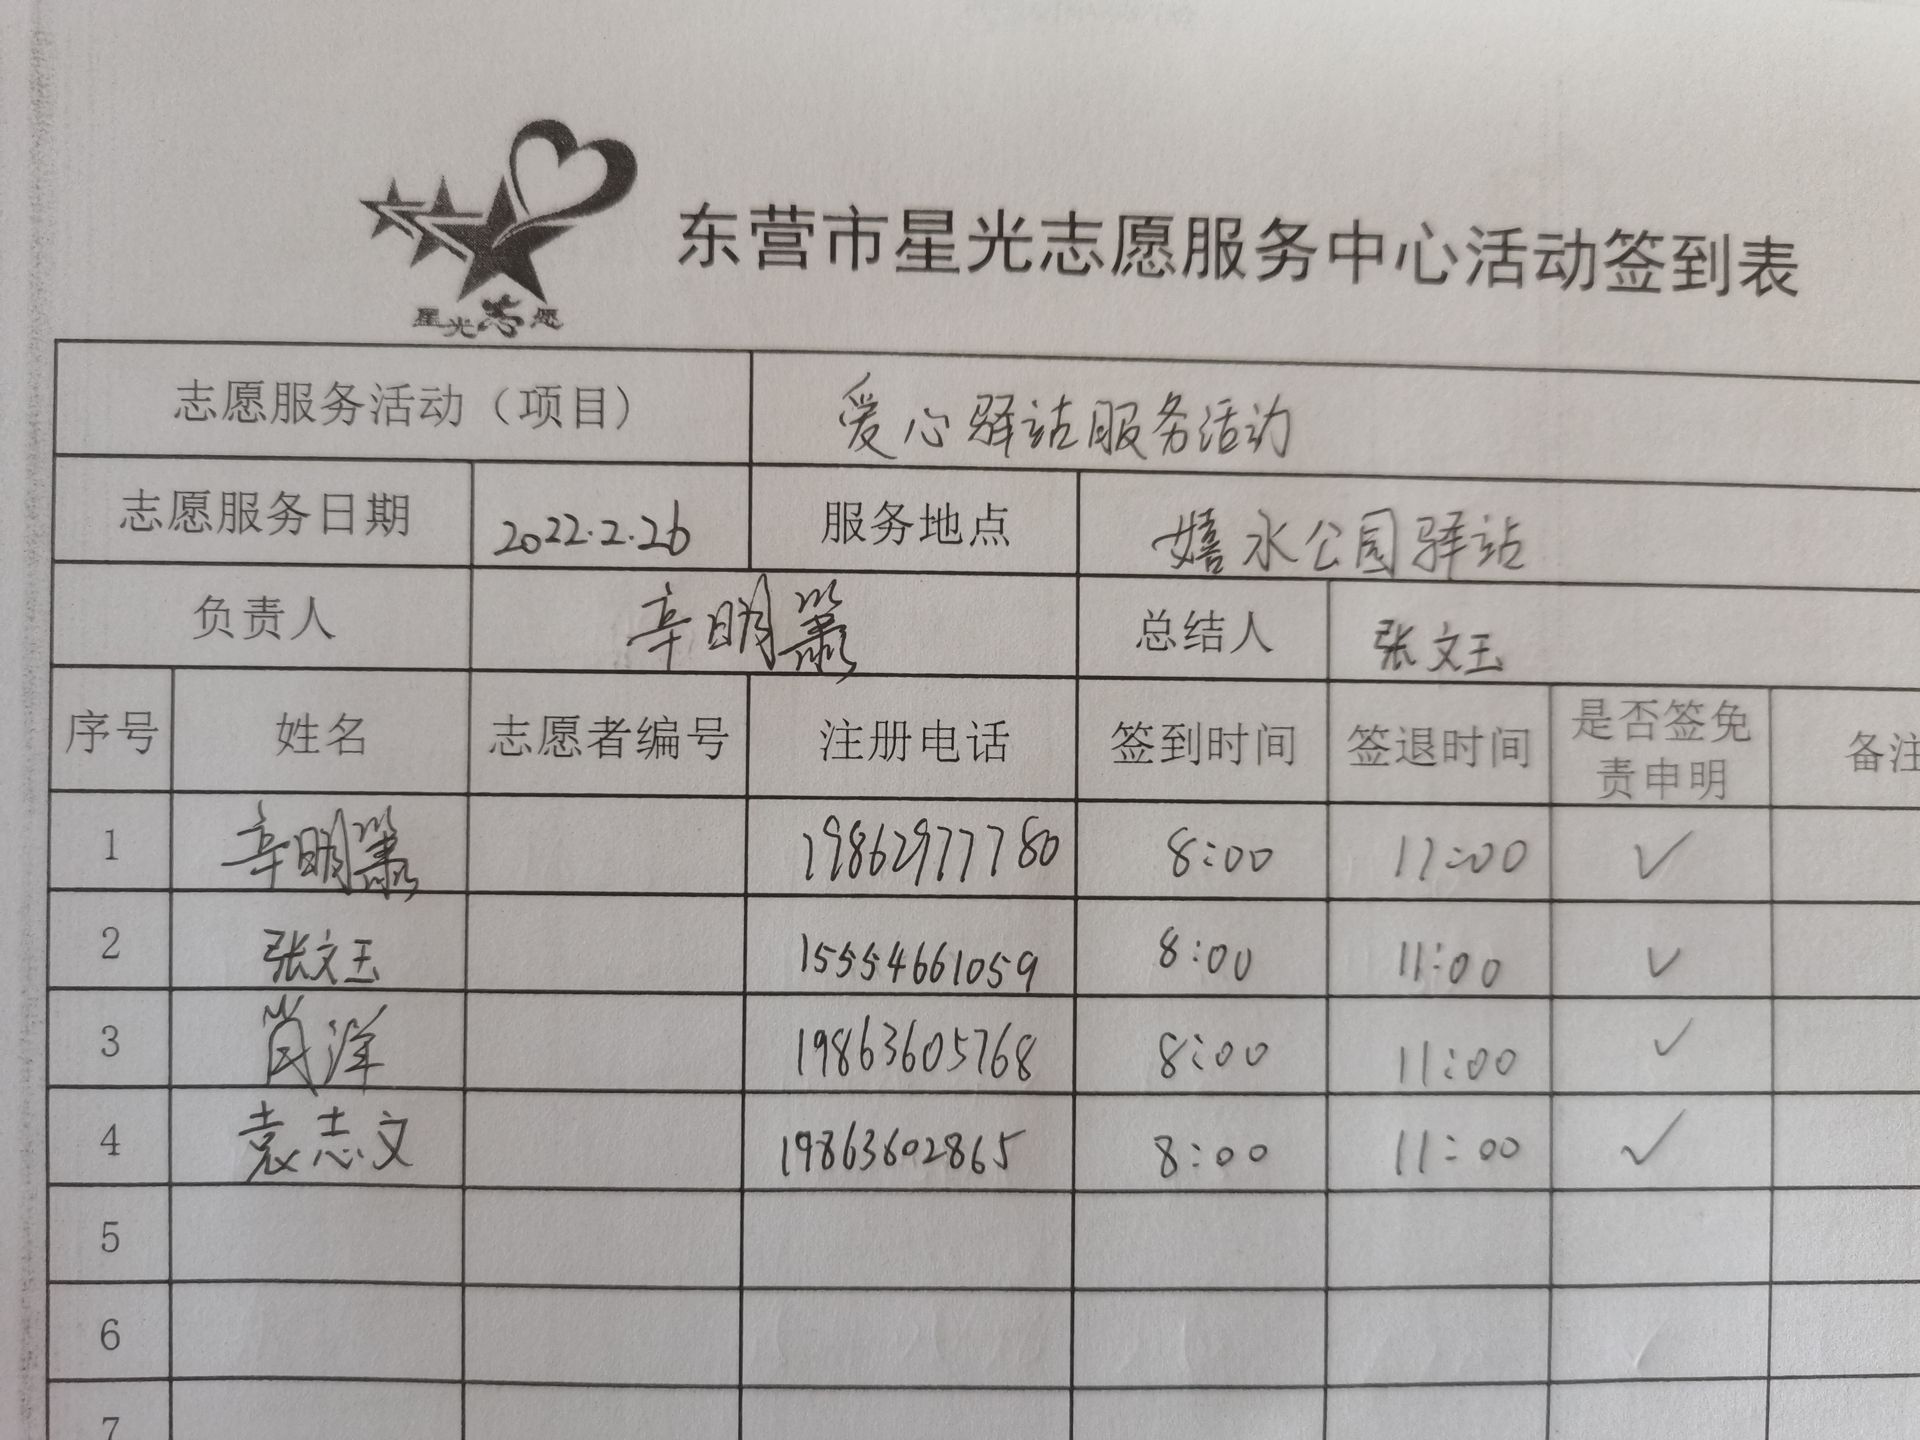 星光志愿
东营市星光志愿服务中心活动签到表
志愿服务活动（项目） 爱心驿站服务活动
志愿服务日期 2022.2.26 服务地点 嬉水公园驿站
负责人 辛明 总结人 张文玉
序号 姓名 志愿者编号 注册电话 签到时间 签退时间 是否签免责申明 备注
1 辛明 19862977780 8:00 11:00 ✓
2 张文玉 15554661059 8:00 11:00 ✓
3 肖洋 19863605768 8:00 11:00 ✓
4 袁志文 19863602865 8:00 11:00 ✓
5
6
7